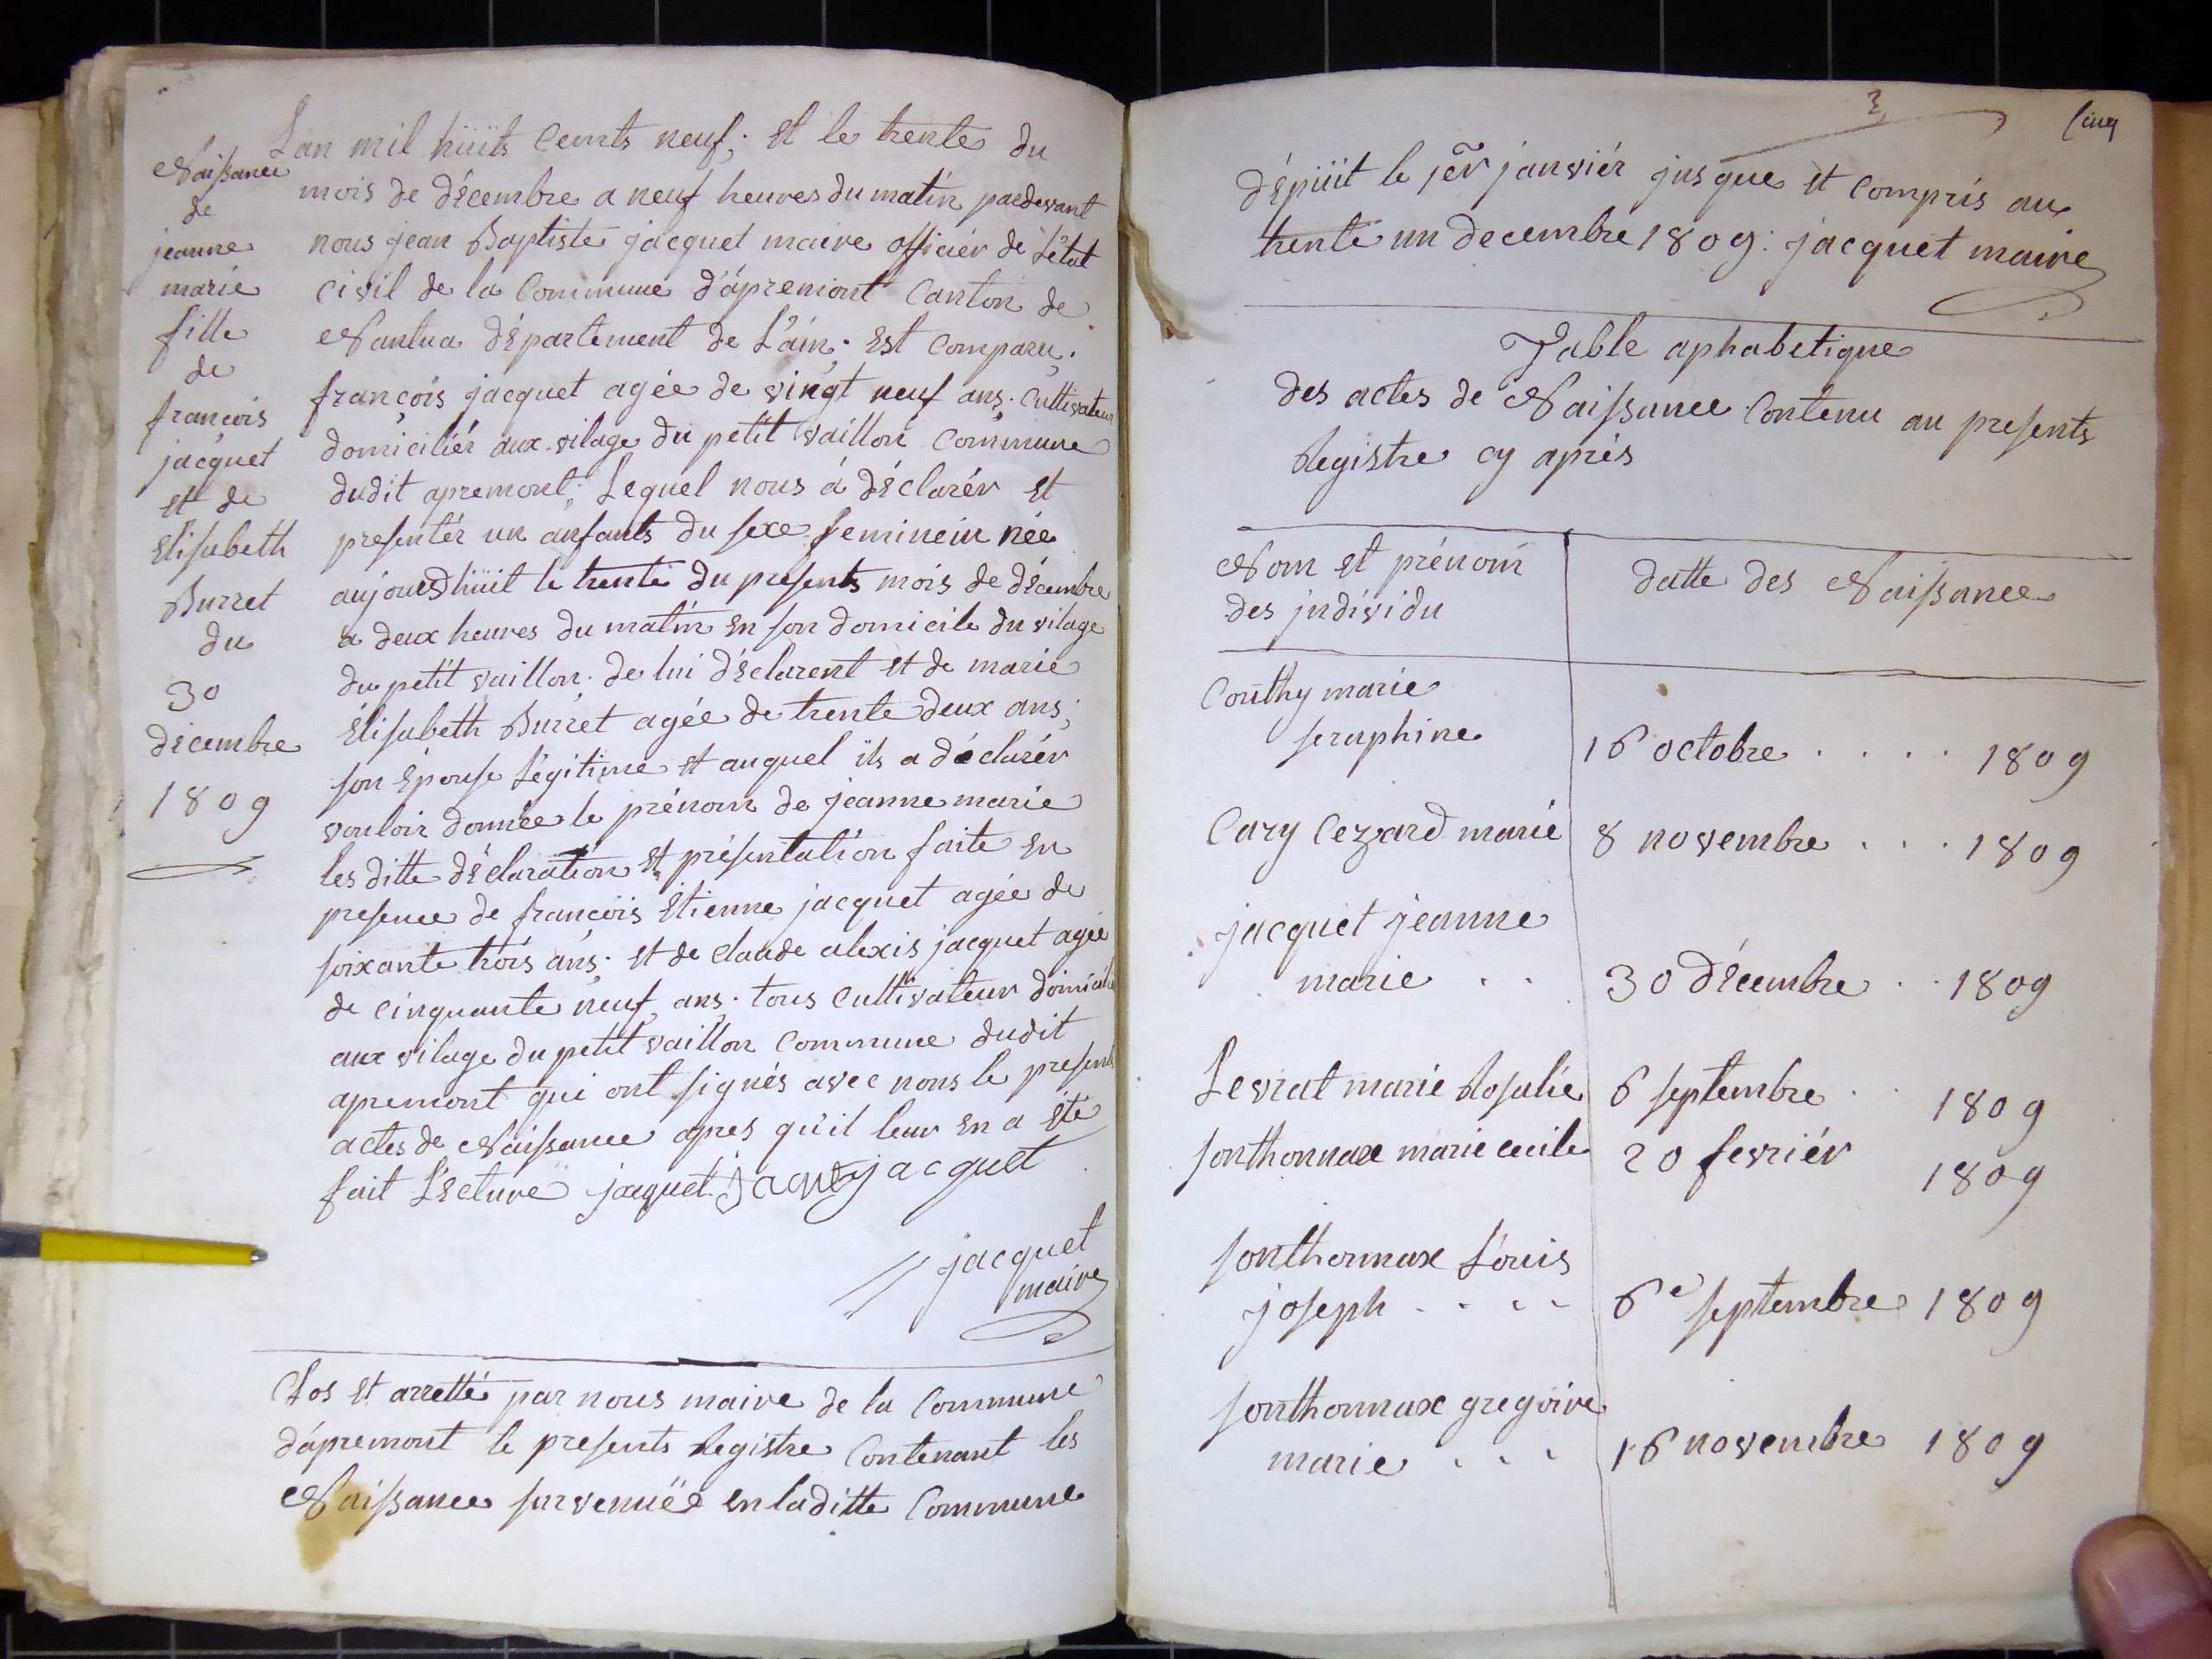 Naissance
de
jeanne
marie
fille
de
françois
jacquet
et de
Elisabeth
Burret
du
30
décembre
1809
Lan mil hüits Cents neuf; et le trente du
mois de décembre a neuf heures du matin pardevant
nous jean Baptiste jacquet maire officiér de L'état
civil de la Commune d'ápremont Canton de
Nantua département de L'ain; est comparu;
françois jacquet agée de vingt neuf ans; Cultivateur
domiciliér aux vilage du petit vaillon Commune
dudit apremont; Lequel nous á déclarér et
presentér un anfants du sexe feminein née
aujourdhüit le trente du presents mois de décembre
a deux heures du matin en son domicile du vilage
du petit vaillon; de lui déclarent et de marie
Élisabeth Burret agée de trente deux ans;
son épouse Légitime et auquel ils a déclarér
vouloir donnée le prénom de jeanne marie
les ditte déclaration et présentation faite en
presence de françois Étienne jacquet agée de
soixante trois ans; et de Claude alexis jacquet agée
de cinquante neuf ans; tous Cultivateur domicilié
aux vilage du petit vaillon Commune dudit
apremont qui ont signés avec nous le presents
actes de Naissance apres qu'il leur en a été
fait Lecture jacquet jaquet jacquet
jacquet
maire
Clos et arretté par nous maire de la Commune
d'ápremont le presents Registre Contenant les
Naissance survenuëe en laditte Commune
3
Cinq
dépüit le 1er janviér jusque et compris au
trente un decembre 1809: jacquet maire
Table aphabetique
des actes de Naissance Contenu au presents
Registre cy aprés
Nom et prénom
des jndividu
datte des Naissance
Couthy marie
seraphine
16 octobre . . . . 1809
Cary Cezard marie
8 novembre . . . 1809
jacquet jeanne
marie . .
30 décembre . . 1809
Levrat marie Rosalie
6 septembre . . 1809
sonthonnax marie cecile
20 fevriér 1809
sonthonnax Louis
joseph . . . .
6e septembre 1809
sonthonnax gregoire
marie . . .
16 novembre 1809